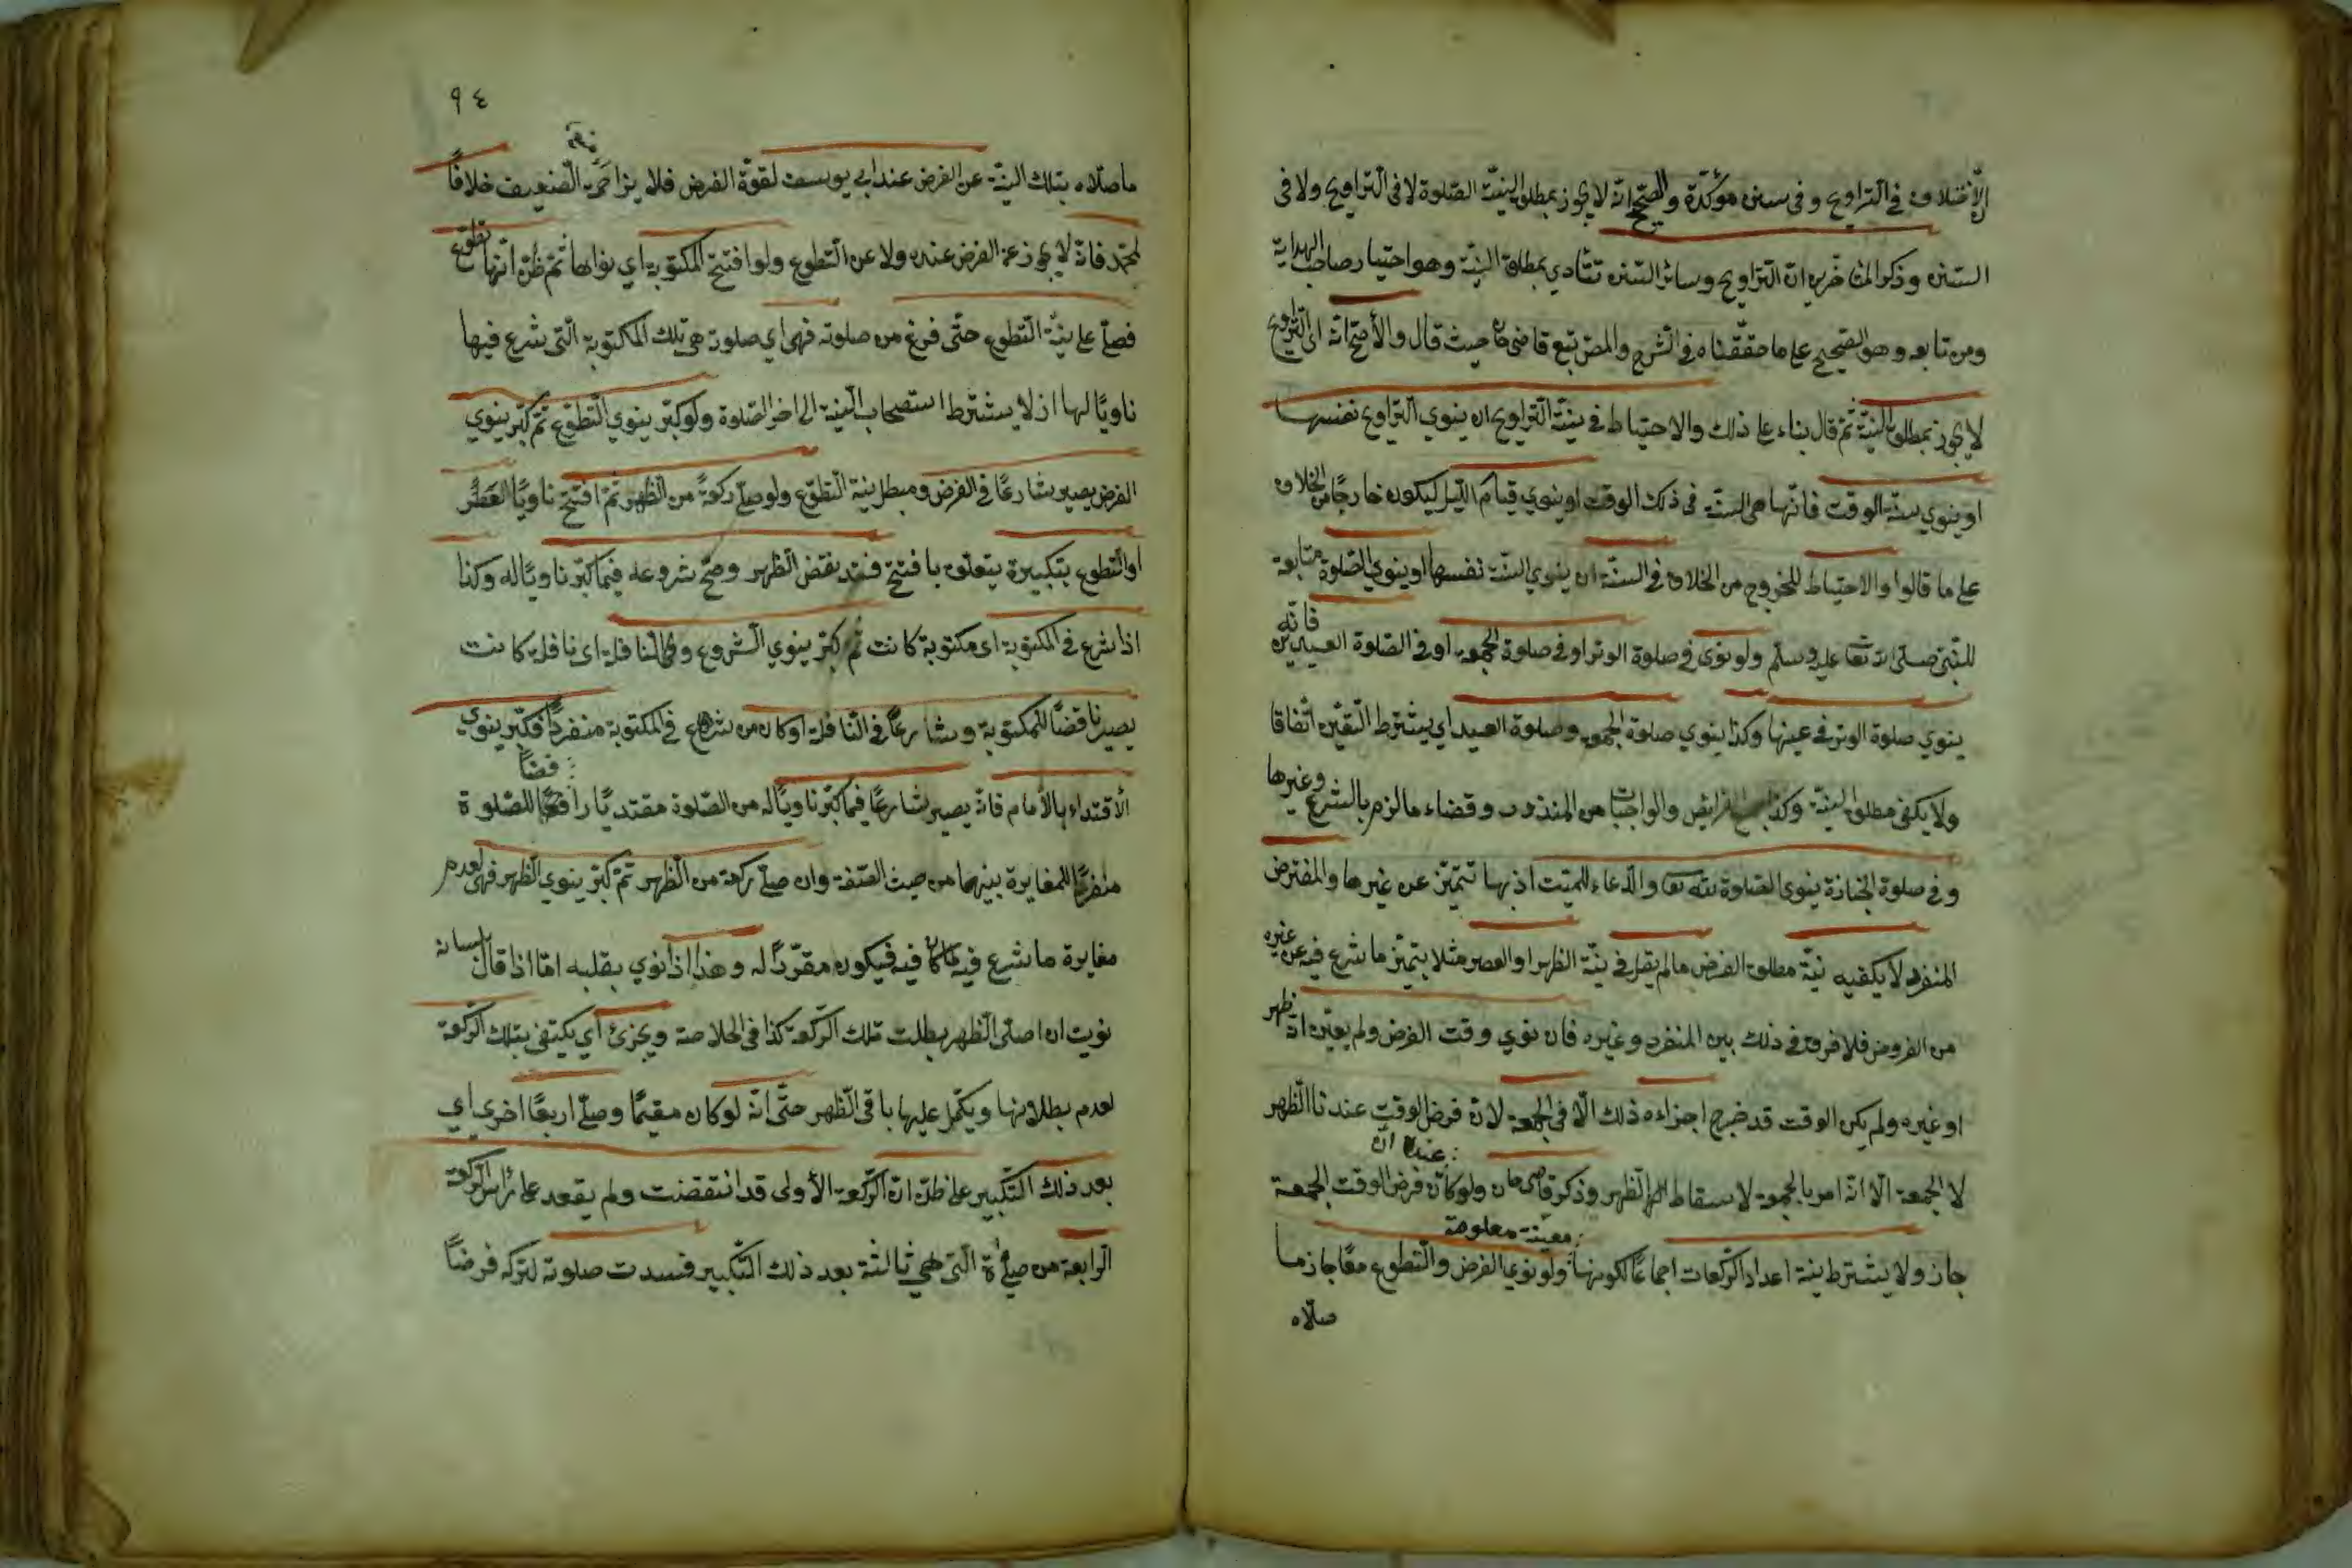 الاختلاف في التراويح وفي سنن مؤكّدة والصحيح انّه لا يجوز بمطلق النيّة الصّلوة لا في التراويح ولا في
السنن وذكر المتأخّرين انّ التراويح وسائر السّنن تتأدي بمطلق النيّة وهو اختيار صاحب الهداية
ومن تابعه وهو الصّحيح على ما حقّقناه في الشرح والمص تبع قاضى خان حيث قال والأصحّ انّه اى التّراويح
لا يجوز بمطلق النيّة ثمّ قال بناء على ذلك والاحتياط في نيّة التّراويح ان ينوي التراويح نفسها
او ينوي سنّة الوقت فانّها هى السنّة في ذلك الوقت او ينوي قيام الليل ليكون خارجًا من الخلاف
على ما قالوا والاحتياط للخروج من الخلاف في السنّة ان ينوي السّنّة نفسها او ينوي الصّلوة متابعة
للنّبىّ صلى الله تعا عليه وسلّم ولو نوى في صلوة الوتر او في صلوة الجمعه او في الصّلوة العيدين فانّه
ينوي صلوة الوتر في عينها وكذا ينوي صلوة الجمعه وصلوة العيد اي يشترط التّعيّن اتّفاقا
ولا يكفى مطلق النيّة وكذا جميع الفرائض والواجبات من المنذور وقضاء ما لزم بالشرع وغيرها
وفي صلوة الجنازة ينوى الصّلوة لله تعا والدّعاء للميّت اذ بها تتميّز عن غيرها والمفترض
المنفرد لا يكفيه نيّة مطلق الفرض ما لم يقل في نيّة الظهر او العصر مثلا يتميّز ما شرع فيه عن غيره
من الفروض فلا فرق في ذلك بين المنفرد وغيره فان نوي وقت الفرض ولم يعيّن انّه ظهر
او غيره ولم يكن الوقت قد خرج اجزاءه ذلك الّا في الجمعة لانّ فرض الوقت عندنا الظهر
لا الجمعة الّا انّه امر بالجمعه لاسقاط الظهر وذكر قاضى خان ولو كان عنده انّ فرض الوقت الجمعة
جاز ولا يشترط نيّة اعداد الرّكعات اجماعًا لكونها معيّنة معلومة ولو نوى الفرض والتّطوع معًا جاز ما
صلّاه
٩٤
ما صلّاه بتلك النيّة عن الفرض عند ابي يوسف لقوّة الفرض فلا يزاحمه الضّعيف خلافًا
لمحمّد فانّه لا يجوز عن الفرض عنده ولا عن التّطوع ولو افتتح المكتوبة اي نواها ثمّ ظنّ انّها تطوّع
فصلّى على نيّة التّطوع حتّى فرغ من صلوته فهى اي صلوته هى تلك المكتوبة الّتى شرع فيها
ناويًا لها اذ لا يشترط استصحاب النيّة الى اخر الصّلوة ولو كبّر ينوي التّطوّع ثمّ كبّر ينوي
الفرض يصير شارعًا في الفرض ومبطل نيّة التّطوّع ولو صلّى ركعةً من الظهر ثمّ افتتح ناويًا العصر
او التّطوع بتكبيرة يتعلّق بافتتح فقد نقض الظهر وصحّ شروعه فيما كبّر ناويًا له وكذا
اذا شرع في المكتوبة اى مكتوبة كانت ثمّ كبّر ينوي الشّروع وفي النّافلة اى نافلة كانت
يصير ناقضًا للمكتوبة وشارعًا في النّافلة او كان من شرع في المكتوبة منفردًا فكبّر ينوي
الأقتداء بالأمام فانّه يصير شارعًا فيما كبّر ناويًا له من الصّلوة مقتديًا رافضًا للصّلوة
منفردًا للمغايرة بينهما من حيث الصّفة وان صلّى ركعة من الظهر ثمّ كبّر ينوي الظهر فهى لعدم
مغايرة ما شرع فيه لما كان فيه فيكون مقرّرًا له وهذا اذا نوي بقلبه امّا اذا قال بلسانه
نويت ان اصلى الظهر بطلت تلك الرّكعة كذا في الخلاصة ويجزئ اي يكتفى بتلك الرّكعة
لعدم بطلانها ويكمل عليها باقى الظهر حتّى انّه لو كان مقيمًا وصلّى اربعًا اخرى اي
بعد ذلك التّكبير على ظنّ انّ الرّكعة الأولى قد انتقضت ولم يقعد على رأس الرّكعة
الرّابعة من صلوة الّتى هى ثالثة بعد ذلك التّكبير فسدت صلوته لتركه فرضًا